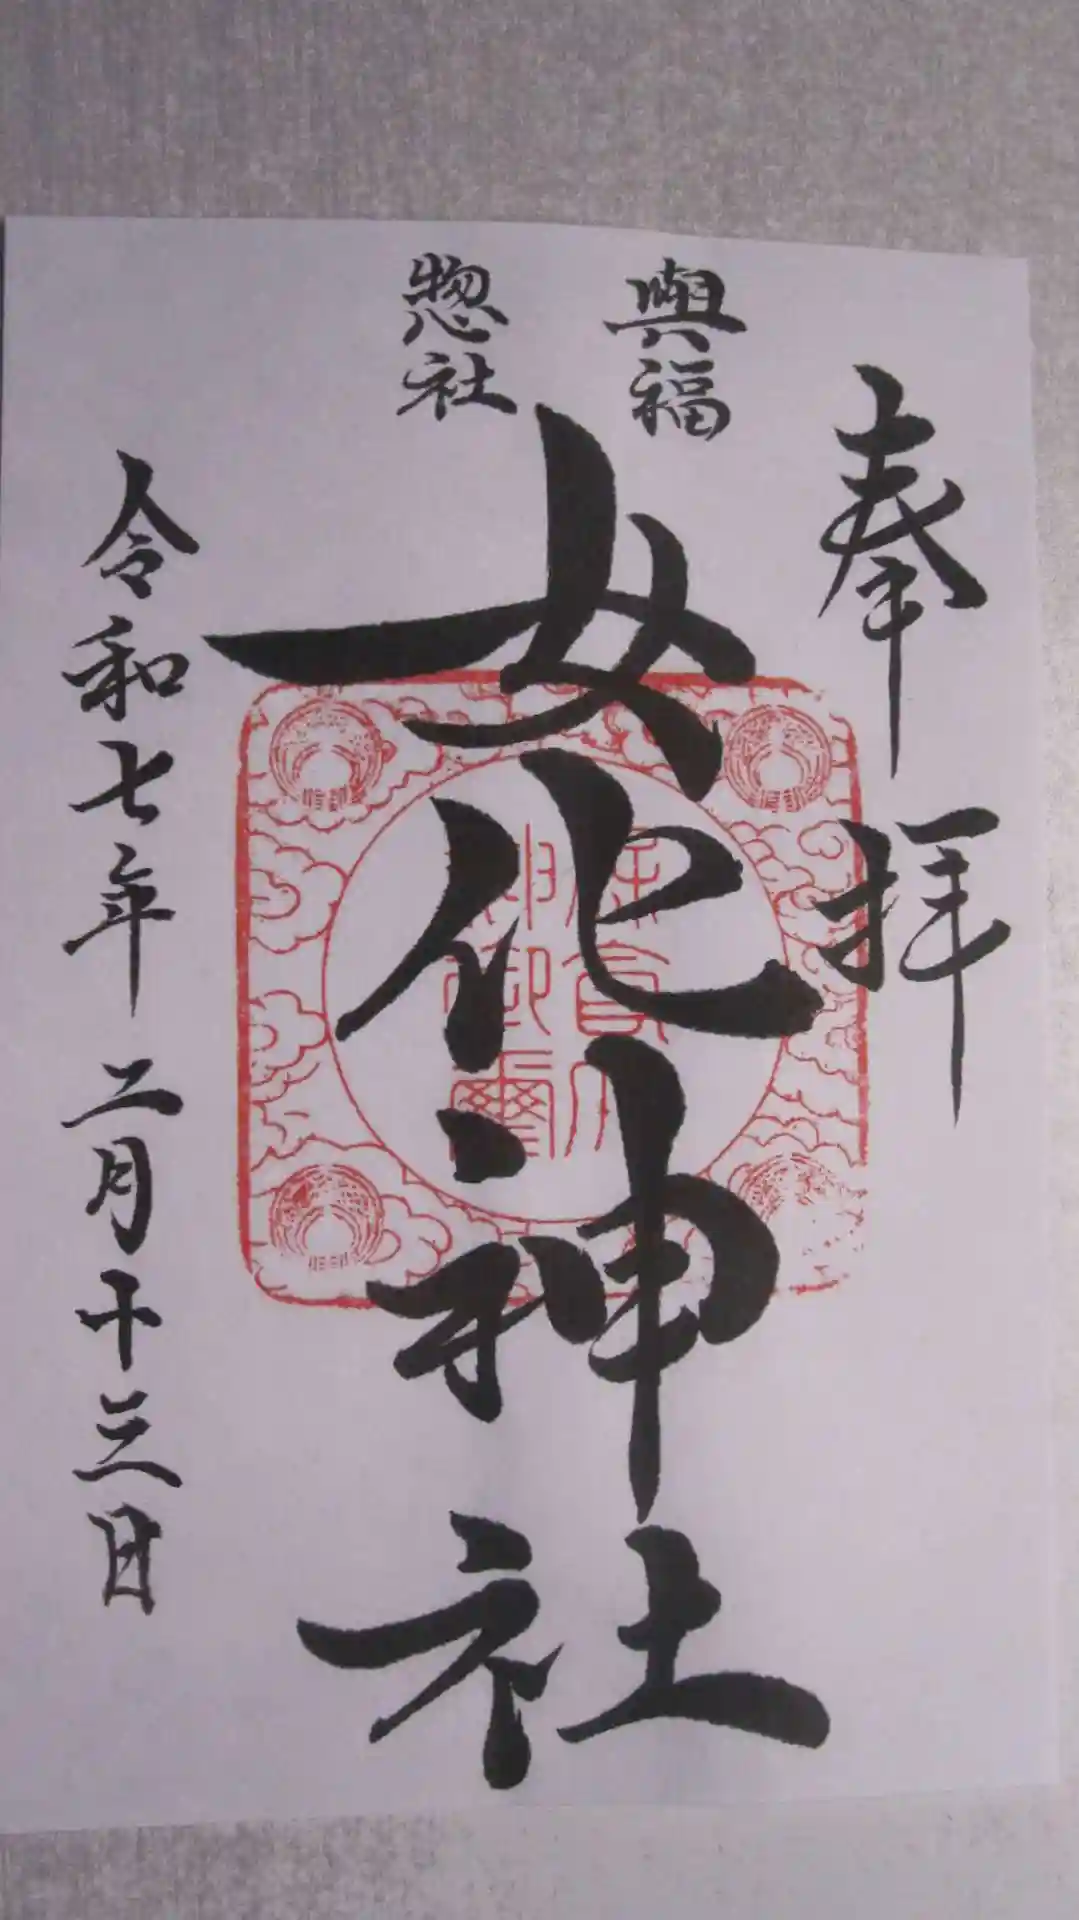 奉拝
興福
惣社
女化神社
令和七年 二月十三日